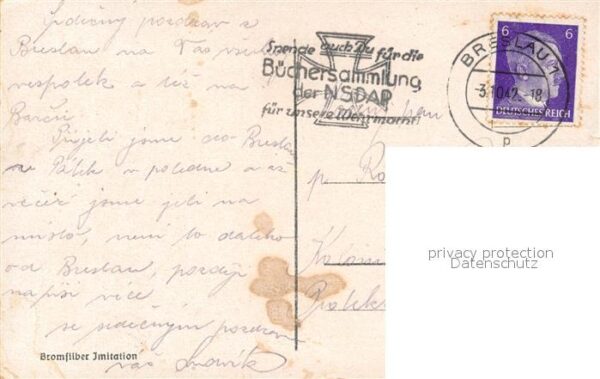 Srdečný pozdrav z
Breslau na Vás všech
vespolek a též na
Přijeli jsme do Bresla
v poledne a až
večer jsme jeli na
místo, není to daleko
od Breslau, později
napíši více
se srdečným pozdrav
váš
Bromsilber Imitation
Spende auch Du für die
Büchersammlung
der NSDAP
für unsere Wehrmacht!
BRESLAU 1
-3.10.42.-18
p
6 6
DEUTSCHES REICH
p.
privacy protection
Datenschutz